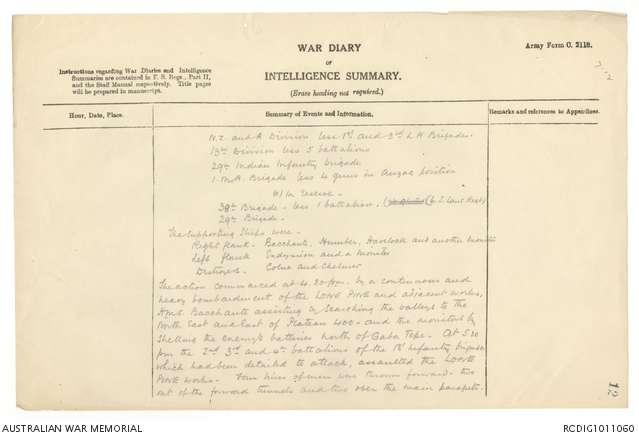 WAR DIARY
OF
INTELLIGENCE SUMMARY.
(Erase heading not required.)
Army Form C. 2118.
Instructions regarding War Diaries and Intelligence
Summaries are contained in F. S. Regs., Part II,
and the Staff Manual respectively. Title pages
will be prepared in manuscript.
Hour, Date, Place.
Summary of Events and Information.
Remarks and references to Appendices.
N.Z. and A Division less 1st and 3rd L H Brigades.
13th Division less 5 battalions
29th Indian Infantry brigade
1. Mtn. Brigade less 4 guns in Anzac position
In Reserve -
38th Brigade - less 1 battalion. (6. E. Lanc Regt)
29th Brigade.
The supporting ships were -
Right flank - Bacchante, Humber, Havelock and another monitor
Left flank Endymion and a monitor
Destroyers. Colne and Chelmer
The action commenced at 4.30 pm. by a continuous and
heavy bombardment of the LONE PINE and adjacent works,
HMS Bacchante assisting by searching the valleys to the
North East and East of Plateau 400 - and the monitors by
shelling the enemy's batteries north of Gaba Tepe. At 5.30
pm the 2nd 3rd and 4th battalions of the 1st infantry brigade
which had been detailed to attack, assaulted the LONE
PINE works. Four lines of men was thrown forward - two
out of the forward tunnels and two over the main parapets.
12
AUSTRALIAN WAR MEMORIAL
RCDIG1011060